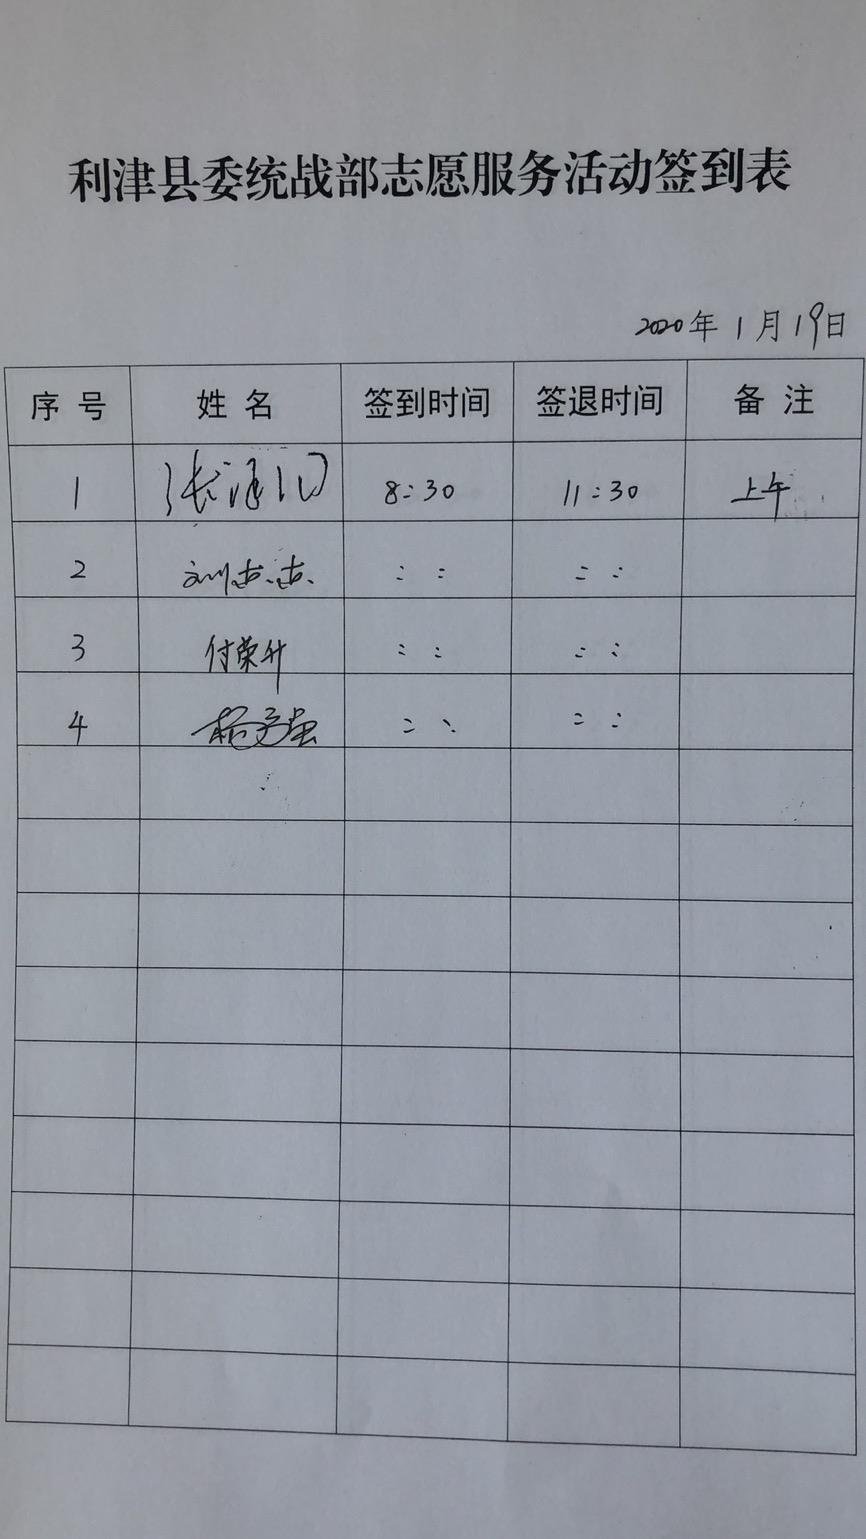 利津县委统战部志愿服务活动签到表
2020年1月19日
序号 姓名 签到时间 签退时间 备注
1 张海 8:30 11:30 上午
2 刘志志 : : : :
3 付荣升 : : : :
4 杨 强 : : : :